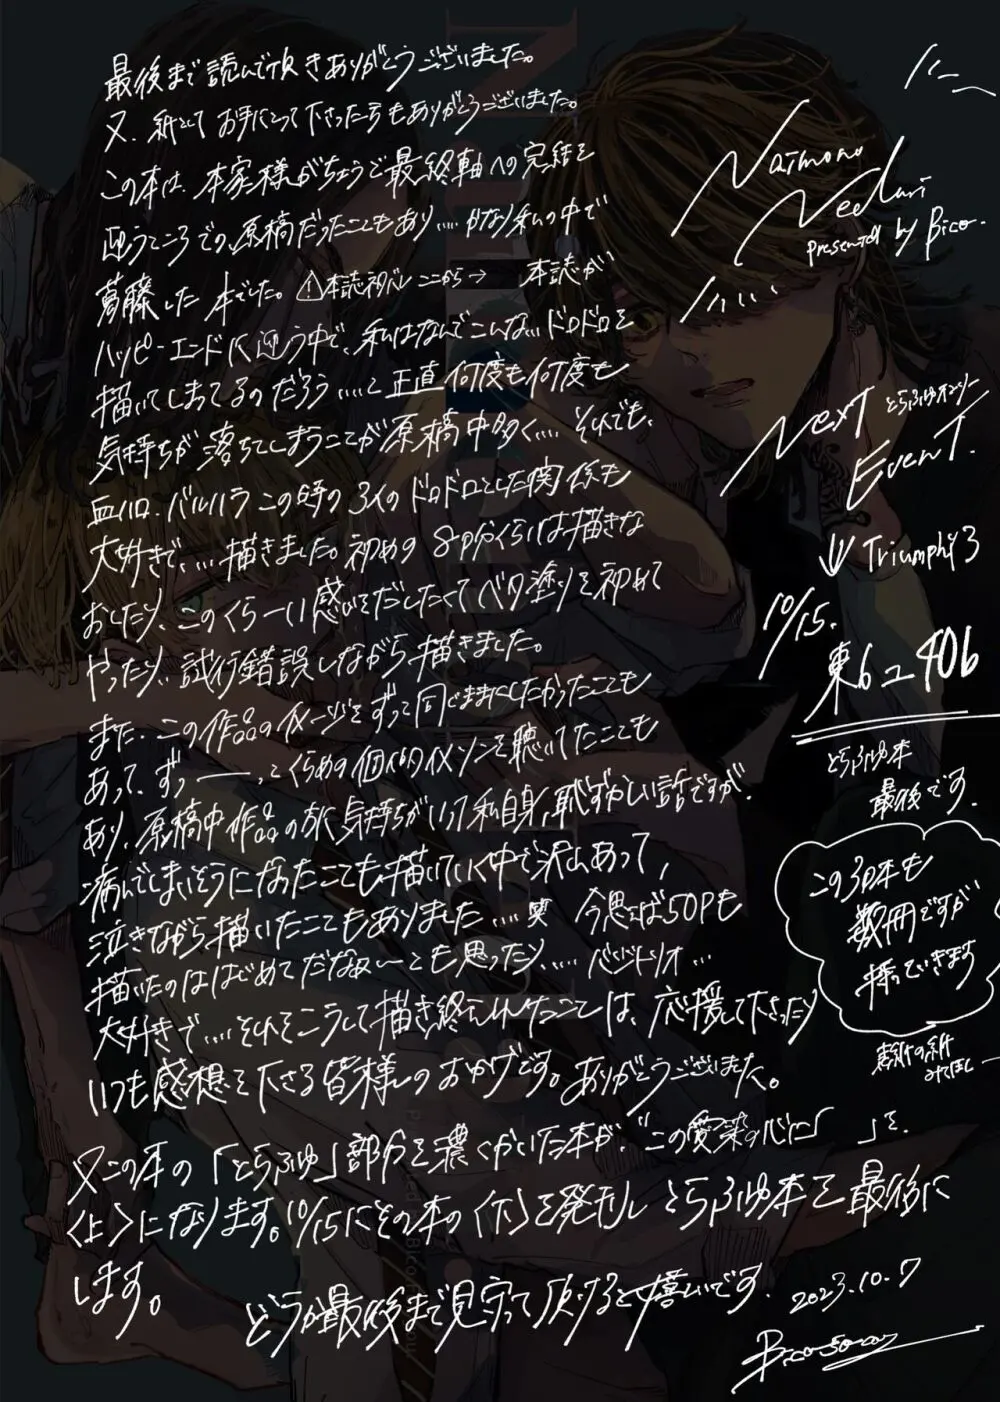 最後まで読んで頂きありがとうございました。
又、紙としてお手にとって下さった方もありがとうございました。
この本は、本家様がちょうど最終軸への完結を
迎うところでの、原稿だったこともあり....かなり私の中で
葛藤した本でした。⚠本誌ネタバレここから→ 本誌が
ハッピーエンドに迎う中で、私はなんでこんな..ドロドロを
描いてしまってるのだろう.....と正直何度も何度も
気持ちが落ちてしまうことが原稿中多く.... それでも、
血ハロ、バルハラこの時の3人のドロドロとした関係も
大好きで、...描きました。初めの8p分くらいは描きな
おしたり、このくらーい感じをだしたくてベタ塗りを初めて
やったり.. 試行錯誤しながら描きました。
また、この作品のイメージをずっと同じままにしたかったことも
あって、ずっ――っとくらめの個的イメソンを聴いてたことも
あり、原稿中作品の方に気持ちがいって私自身、恥ずかしい話ですが、
病んでしまいそうになったことも描いていく中で沢山あって、
泣きながら描いたこともありました....笑 今思えば50Pも
描いたのははじめてだなぁ〜とも思ったり.....バジトリオ...
大好きで....それをこうして描き終えれたことは、応援して下さったり
いつも感想を下さる皆様のおかげです。ありがとうございました。
又この本の「とらふゆ」部分を濃くかいた本が、"この愛染の心に「 」を、
〈上〉になります。10/15にその本の〈下〉を発刊しとらふゆ本を最後に
します。
どうか最後まで見守って頂けると嬉しいです.
2023.10.7
Naimono
Nedari
presented by Bico.
Next とらふゆオンリー
Event.
↓ Triumph!! 3
10/15.
東6ユ40b
とらふゆ本
最後です.
この3D本も
数冊ですが
持っていきます
表紙の紙
みてほしー